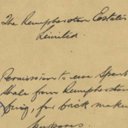 The Kempherston Estates
Limited
Permission to use Spent
Shale from Kempherston
Bing for brick making
purposes